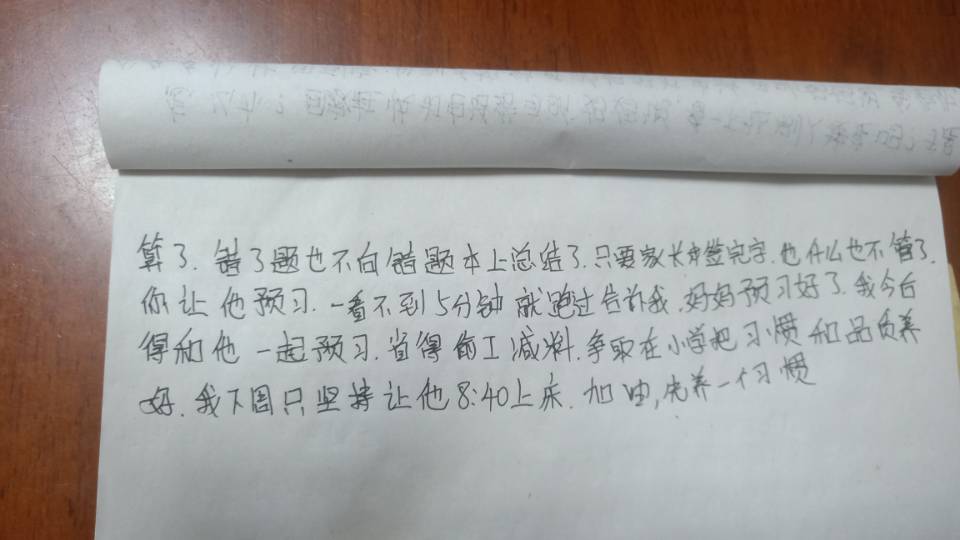 算了.错了题也不向错题本上总结了.只要家长签完字.也什么也不管了.
你让他预习.一看不到5分钟就跑过告诉我.妈妈预习好了.我今后
得和他一起预习.省得偷工减料.争取在小学把习惯和品质养
好.我下周只坚持让他8:40上床.加油,先养一个习惯